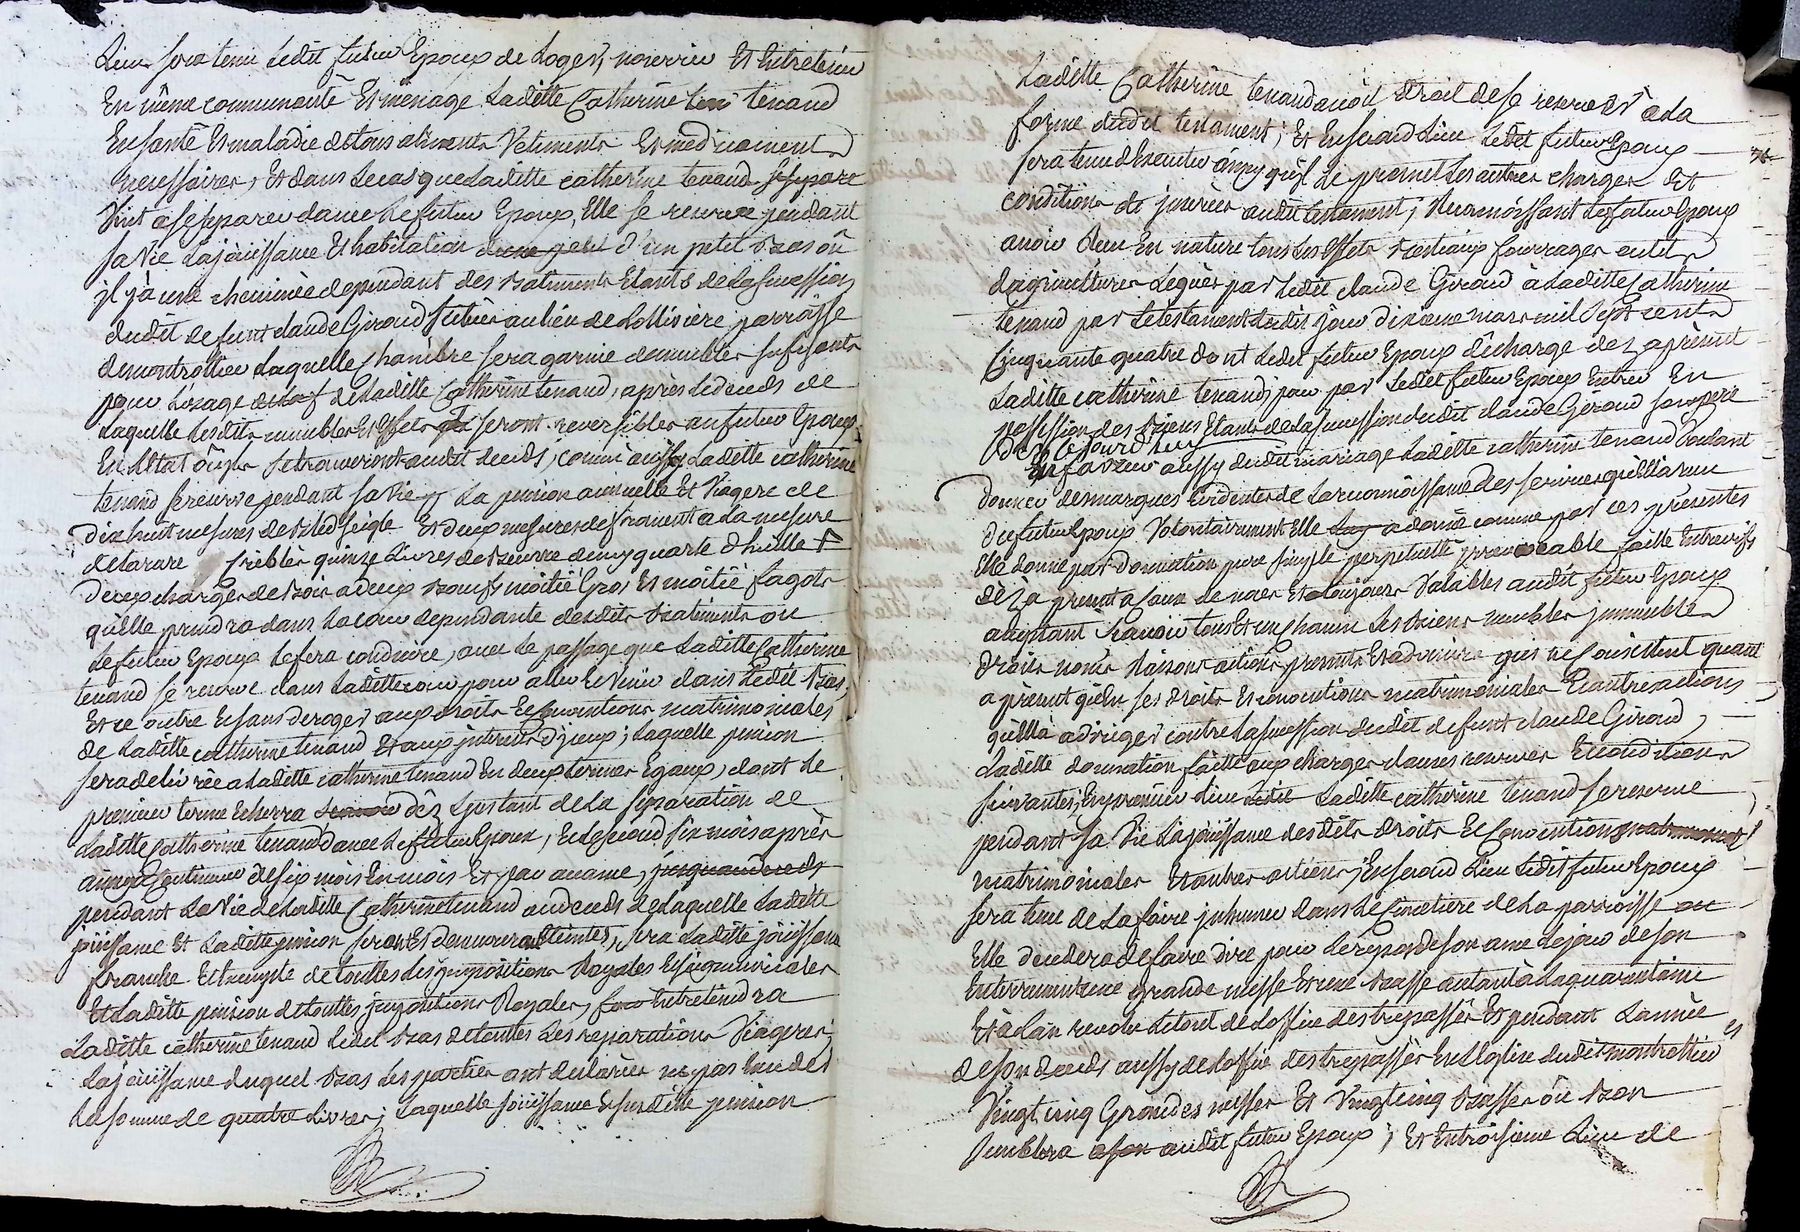 Lieu sera tenu Ledit futur Epoux de Loger, nourrir Et Entretenir
En même communauté Et ménage Laditte Catherine tenand
En santé Et maladie de tous aliments Vetiments Et médicaments
necessaires, Et dans Le cas que Laditte catherine tenand
Vint a se separer d'avec Le futur Epoux, Elle se reserve pendant
sa vie La jouissance Et habitation d'un petit bas où
jl y a une cheminée dependant des batiments Etants de La succession
dudit defunt claude Giroud situés au lieu de Lollivière parroisse
de montrottier Laquelle chambre sera garnie de meubles sufisants
pour L'usage de Laditte Catherine tenand, après Le deceds de
Laquelle Lesdits meubles Et Effets seront reversibles au futur Epoux
En L'Etat où jls se trouveront audit deceds, comm' aussy Laditte catherine
tenand se reserve pendant sa vie La pension annuelle Et Viagere de
dix huit mesures de bled seigle Et deux mesures de froment a La mesure
de tarare criblés quinze Livres de beurre demy quarte d'huille
deux charges de bois a deux boeufs moitié Gros Et moitié fagots
qu'elle prendra dans La cour dependante desdits batiments ou
Le futur Epoux Le fera conduire, avec Le passage que Laditte Catherine
tenand se reserve dans Laditte cour pour aller Et Venir dans Ledit bas
Et ce outre Et sans deroger aux droits Et Conventions matrimoniales
de Laditte catherine tenand Et aux jnterets d'jceux; Laquelle pension
sera delivrée a Laditte catherine tenand En deux termes Egaux, dont Le
premier terme Echerra dèz L'jnstant de La separation de
Laditte Catherine tenand d'avec Le futur Epoux, Et Le second six mois après
ainsy Continuer de six mois En mois Et par avance, jusqu'au deceds
pendant La vie de Laditte Catherine tenand au deceds de Laquelle Laditte
jouissance Et Laditte pension seront Et demeureront Eteintes, sera Laditte jouissance
franche Et Exempte de touttes Les jmpositions Royales Et seigneuriales
Et Laditte pension de touttes jmpositions Royales, Entretiendra
Laditte catherine tenand Ledit bas de touttes Les reparations Viageres;
La jouissance duquel bas Les parties ont declarés ne pas Exceder
La somme de quatre Livres; Laquelle jouissance Et susditte pension
Laditte Catherine tenand avoit droit de se reserver à La
forme dudit testament; Et En second Lieu Ledit futur Epoux
sera tenu d'Executer ainsy qu'jl Le promet Les autres charges Et
conditions audit testament; reconnoissant Ledit futur Epoux
avoir Reçu En nature tous Les Effets bestiaux fourrages outils
d'agricultures Legués par Ledit claude Giroud à Laditte Catherine
tenand par Le testament dudit jour dixieme mars mil sept cents
cinquante quatre dont Ledit futur Epoux decharge dez a present
Laditte catherine tenand, pour par Ledit futur Epoux Entrer En
possession des biens Etants de La succession dudit claude Giroud son pere
dez cejourd'huy
En faveur aussy dudit mariage Laditte catherine tenand Voulant
donner des marques Evidentes de La reconnoissance des services qu'Elle a reçu
du futur Epoux Volontairement Elle a donné comme par ces presentes
Elle donne par donnation pure simple perpetuelle jrrevocable faitte Entrevifs
dèz a present a jamais Et a toujours Valables audit futur Epoux
acceptant sçavoir tous Et un chacun Ses biens meubles jmmeubles
droits noms Raisons actions presents Et avenirs qui ne Consistent quant
a present qu'En ses droits Et conventions matrimoniales Et autres actions
qu'Elle a à diriger contre La succession dudit defunt claude Giroud,
Laditte donnation faitte aux charges clauses reserves Et conditions
suivantes, En premier Lieu Laditte catherine tenand se reserve
pendant sa Vie La jouissance desdits droits Et Conventions
matrimoniales Et autres actions; En second Lieu Ledit futur Epoux
sera tenu de La faire jnhumer dans Le Cimetiere de La parroisse ou
Elle decedera de faire dire pour Le repos de son ame Le jour de son
Enterrement une grande messe Et une basse autant à La quarantaine
Et à L'an revolu Le tout de L'office des trepassés Et pendant L'année
de son deceds aussy de L'office des trepassés En L'Eglise dudit montrottier
Vingt cinq Grandes messes Et Vingt cinq basses où bon
semblera audit futur Epoux; Et En troisieme Lieu de